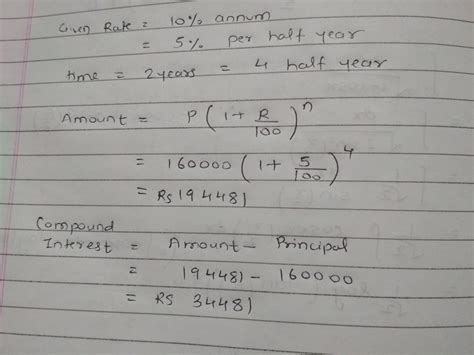 Given Rate = 10% annum
= 5% per half year
time = 2 years = 4 half year
Amount = P(1 + R/100)^n
= 160000(1 + 5/100)^4
= Rs 194481
Compound
Interest = Amount - Principal
= 194481 - 160000
= RS 34481